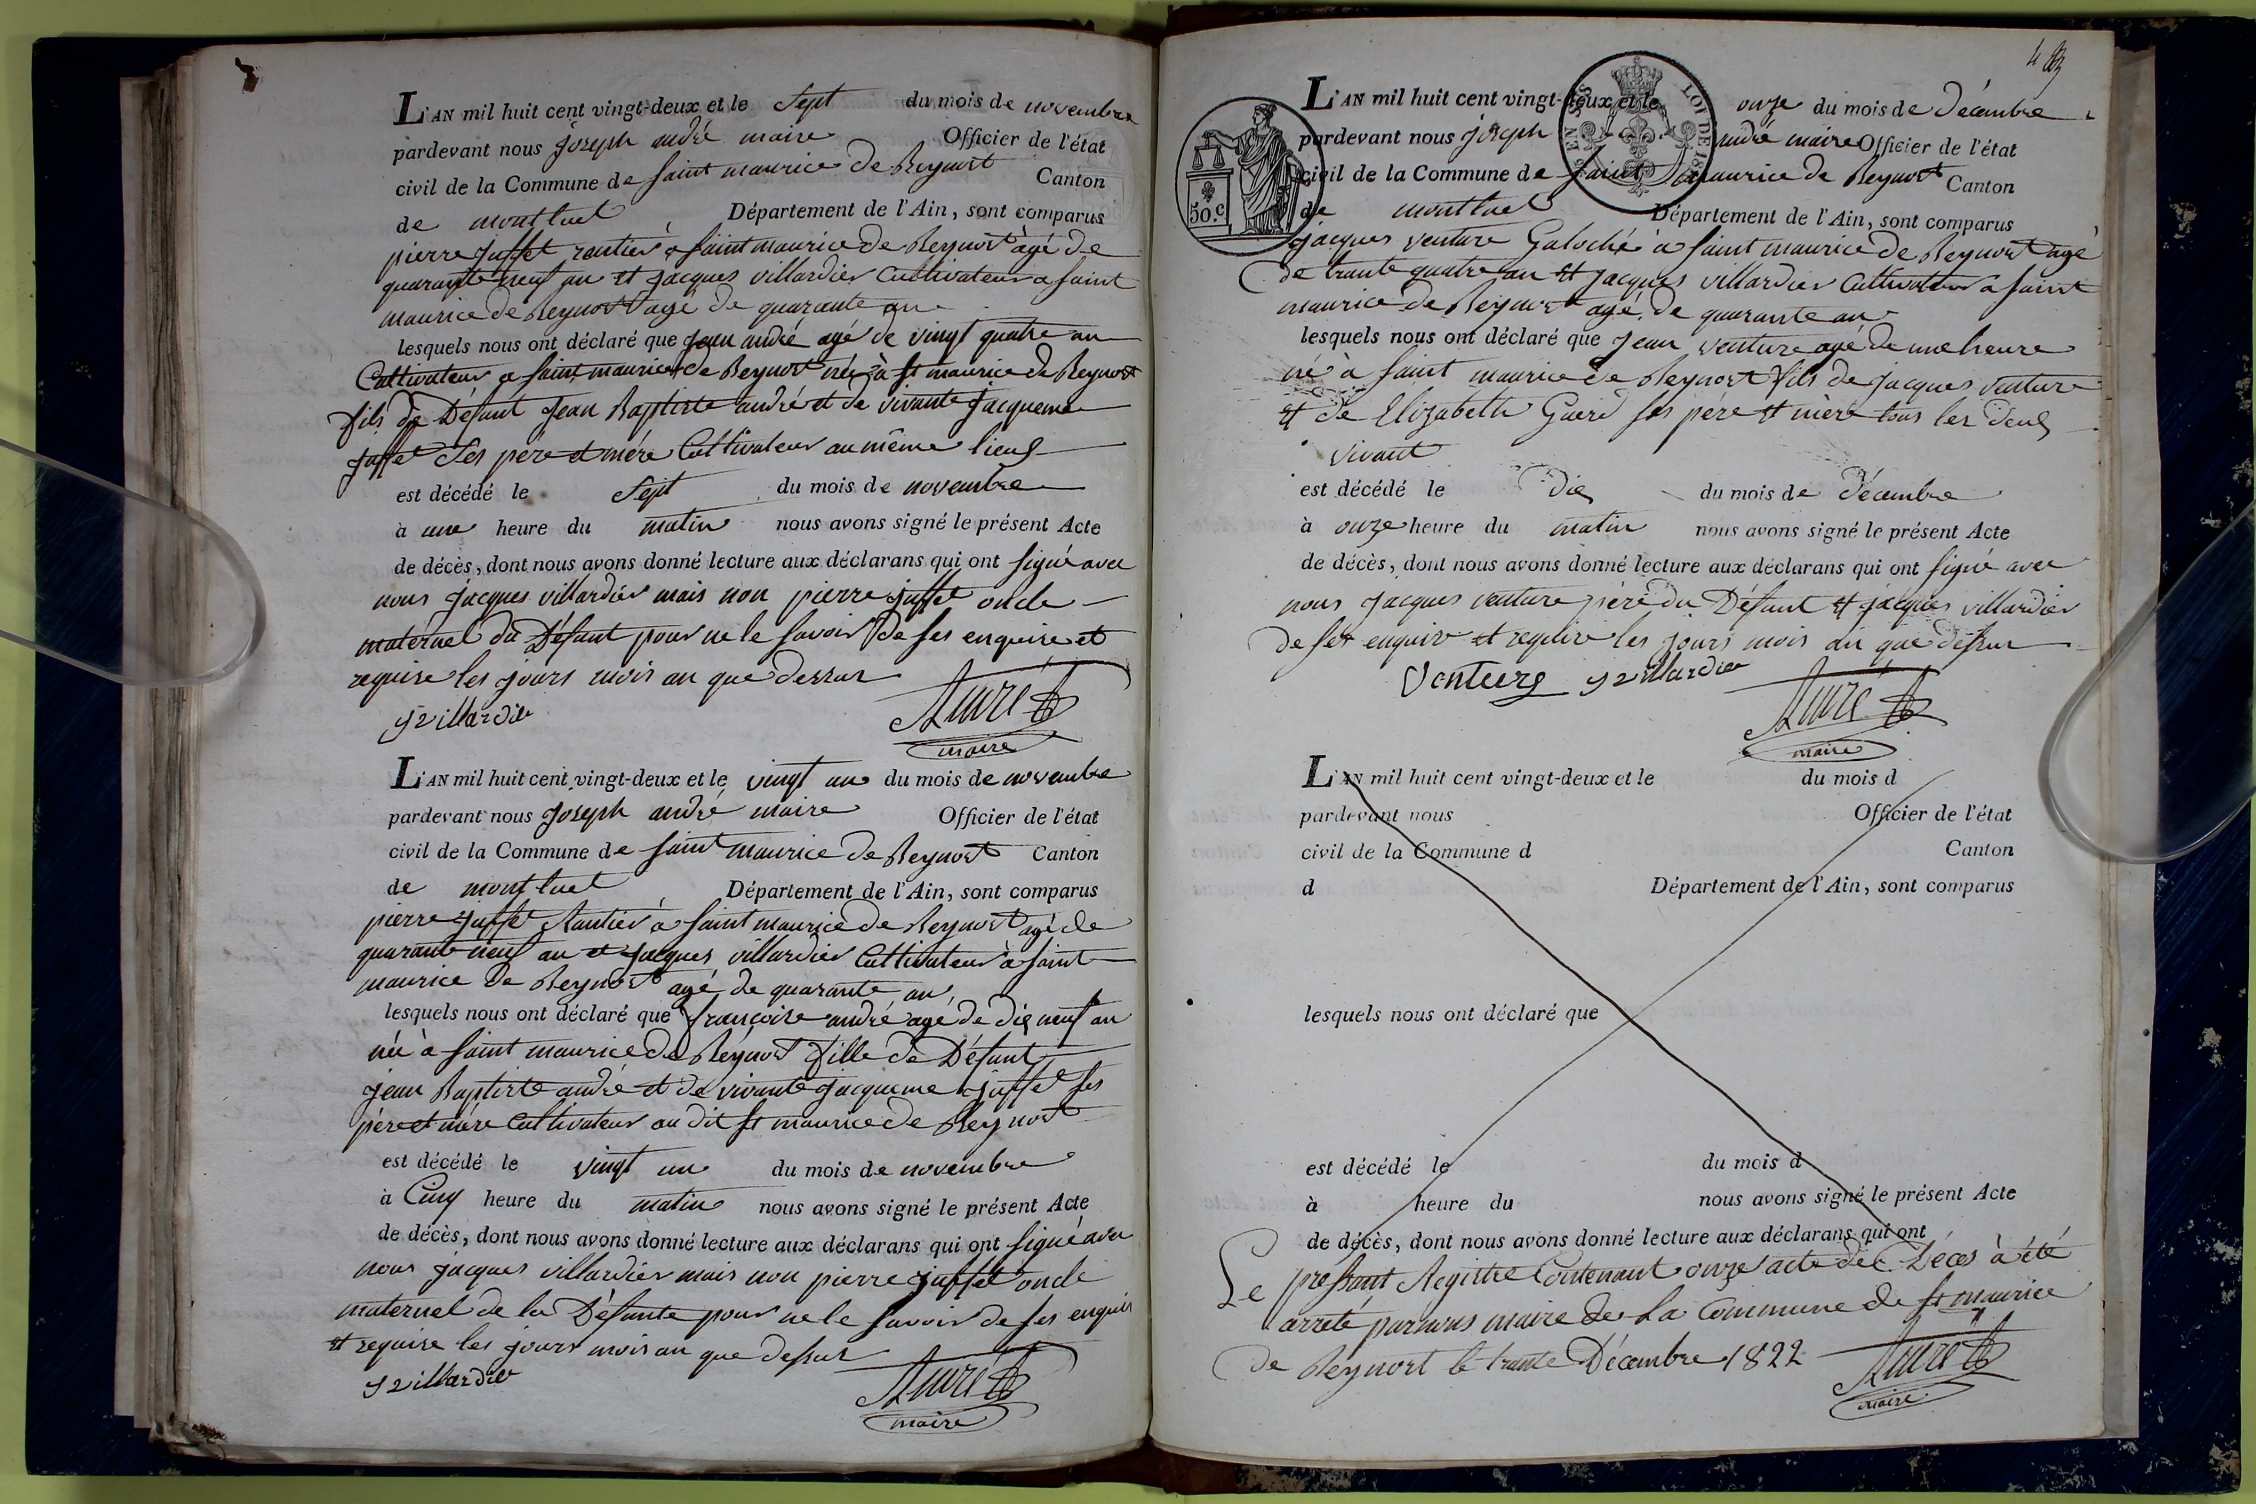 L'AN mil huit cent vingt-deux et le Sept du mois de novembre
pardevant nous joseph andré maire Officier de l'état
civil de la Commune de saint maurice de Beynost Canton
de montluel Département de l'Ain, sont comparus
pierre juffet rantier a saint maurice de Beynost agé de
quarante neuf an et jacques villardier cultivateur a saint
maurice de Beynost agé de quarante an
lesquels nous ont déclaré que jean andré agé de vingt quatre an
Cultivateur a saint maurice de Beynost née à st maurice de Beynost
fils de Défunt jean Baptiste andré et de vivante jacqueme
juffet Ses père et mére Cultivateur au même lieux
est décédé le Sept du mois de novembre
à une heure du matin nous avons signé le présent Acte
de décès, dont nous avons donné lecture aux déclarans qui ont signé avec
nous jacques villardier mais non pierre juffet oncle
maternel du Défunt pour ne le savoir de ses enquire et
requise les jours mois an que dessus
j villardier André
maire
L'AN mil huit cent vingt-deux et le vingt un du mois de novembre
pardevant nous joseph andré maire Officier de l'état
civil de la Commune de saint maurice de Beynost Canton
de montluel Département de l'Ain, sont comparus
pierre juffet Rantier à saint maurice de Beynost agé de
quarante neuf an et jacques villardier Cultivateur à saint
maurice de Beynost agé de quarante an
lesquels nous ont déclaré que françoise andré agé de dix neuf an
née à saint maurice de Beynost fille de Défunt
jean Baptiste andré et de vivante jacqueme juffet ses
père et mére cultivateur au dit st maurice de Beynost
est décédé le vingt un du mois de novembre
à Cinq heure du matin nous avons signé le présent Acte
de décès, dont nous avons donné lecture aux déclarans qui ont signé avec
nous jacques villardier mais non pierre juffet oncle
maternel de la Défunte pour ne le savoir de ses enquis
et requise les jours mois an que dessus
j villardier André
maire
48
50.c
LOI DE 18
L'AN mil huit cent vingt-deux et le onze du mois de Décembre
pardevant nous joseph andré maire Officier de l'état
civil de la Commune de saint maurice de Beynost Canton
de montluel Département de l'Ain, sont comparus
jacques venture Galoché à saint maurice de Beynost agé
de trante quatre an et jacques villardier Cultivateur a saint
maurice de Beynost agé de quarante an
lesquels nous ont déclaré que jean venture agé de une heure
né à saint maurice de Beynost fils de jacques venture
et de Elizabeth Gueré ses pére et mère tous les deux
vivant
est décédé le dix du mois de décembre
à onze heure du matin nous avons signé le présent Acte
de décès, dont nous avons donné lecture aux déclarans qui ont signé avec
nous jacques venture pére du Défunt et jacques villardier
de ses enquire et require les jours mois an que dessus
Venture j villardier André
maire
L'AN mil huit cent vingt-deux et le du mois d
pardevant nous Officier de l'état
civil de la Commune d Canton
d Département de l'Ain, sont comparus
lesquels nous ont déclaré que
est décédé le du mois d
à heure du nous avons signé le présent Acte
de décès, dont nous avons donné lecture aux déclarans qui ont
Le pressant Registre Contenant onze acte de Déces à été
arrété par nous maire de La Commune de st maurice
de Beynost le trante Décembre 1822 André
maire